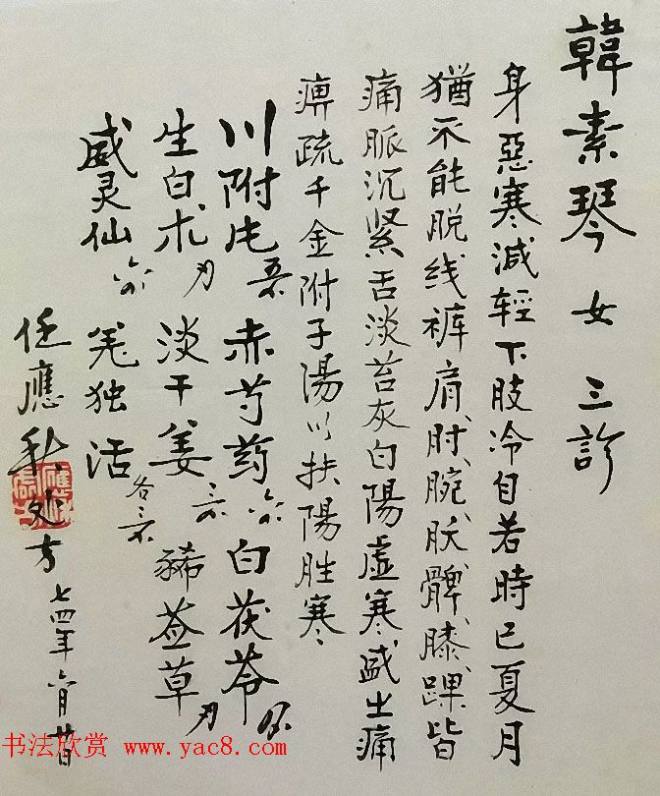 韓素琴 女 三診
身惡寒減轻下肢冷自若時已夏月
猶不能脱线裤肩、肘、腕、髀、膝、踝皆
痛脈沉紧舌淡苔灰白陽虚寒盛之痛
痹疏千金附子湯以扶陽胜寒
川附片 赤芍药 白茯苓
生白术 淡干姜 豨莶草
威灵仙 羌独活 各
任應秋处方
七四年六月廿日
书法欣赏 www.yac8.com